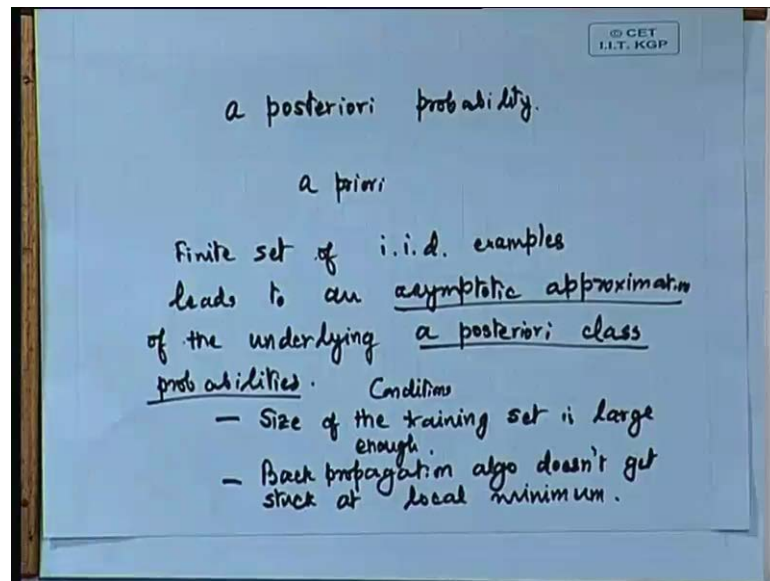 © CET
I.I.T. KGP
a posteriori probability.
a priori
Finite set of i.i.d. examples
leads to an asymptotic approximation
of the underlying a posteriori class
probabilities. Conditions
– Size of the training set is large
enough.
– Back propagation algo doesn't get
stuck at local minimum.